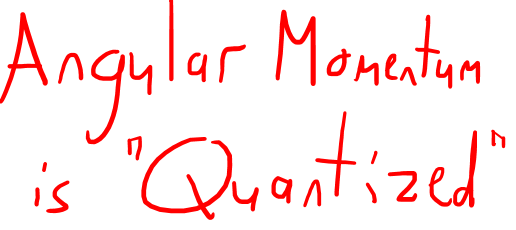 Angular Momentum
is "Quantized"